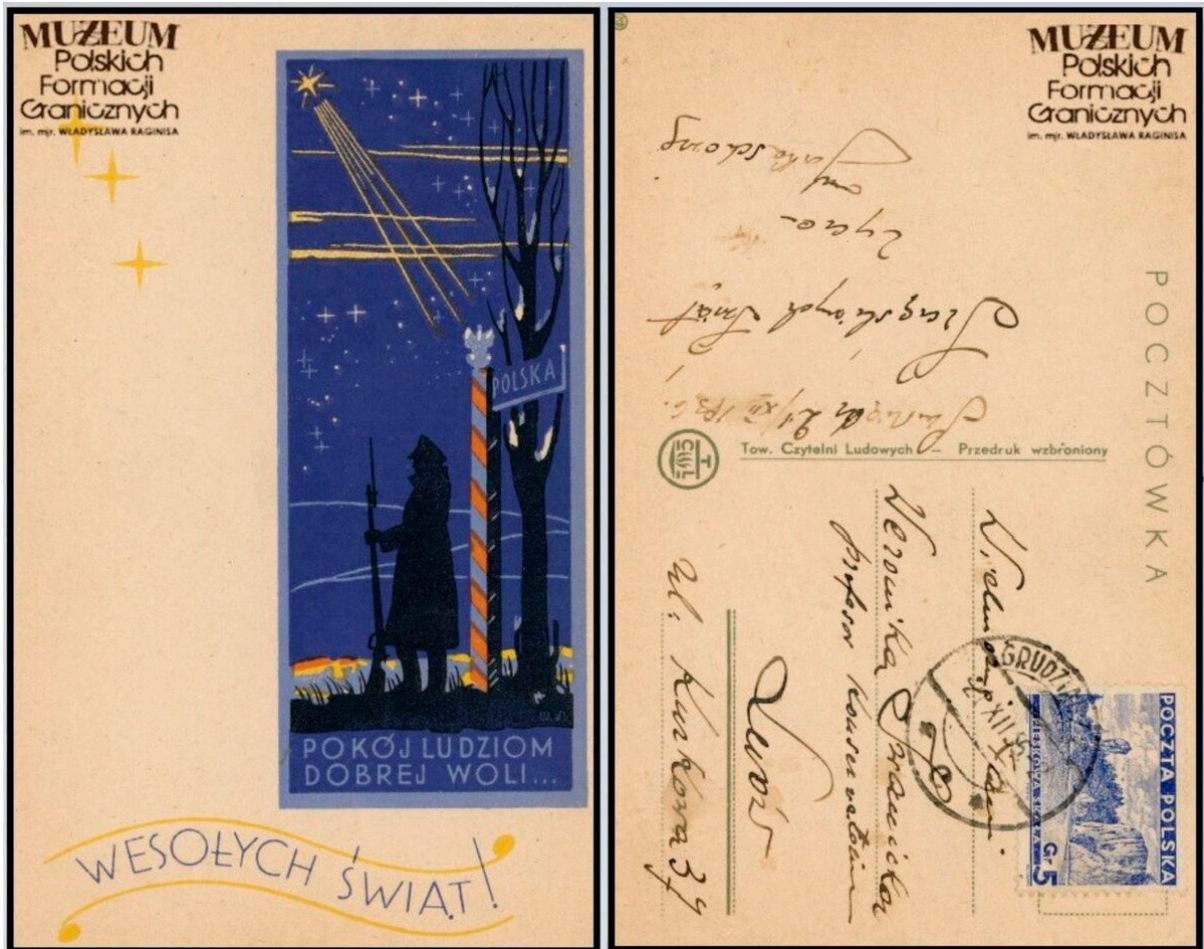 MUZEUM
Polskich
Formacji
Granicznych
im. mjr. WŁADYSŁAWA RAGINISA
POLSKA
POKÓJ LUDZIOM
DOBREJ WOLI...
WESOŁYCH ŚWIĄT!
MUZEUM
Polskich
Formacji
Granicznych
im. mjr. WŁADYSŁAWA RAGINISA
POCZTÓWKA
21/XII
Szczęśliwych Świąt
życzą
Tow. Czytelni Ludowych – Przedruk wzbroniony
TCL
Weronika
profesor Konserwatorium
Lwów
ul. Kurkowa 39
GRUDZI
XII
POCZTA POLSKA
PIESKOWA SKAŁA
Gr. 5